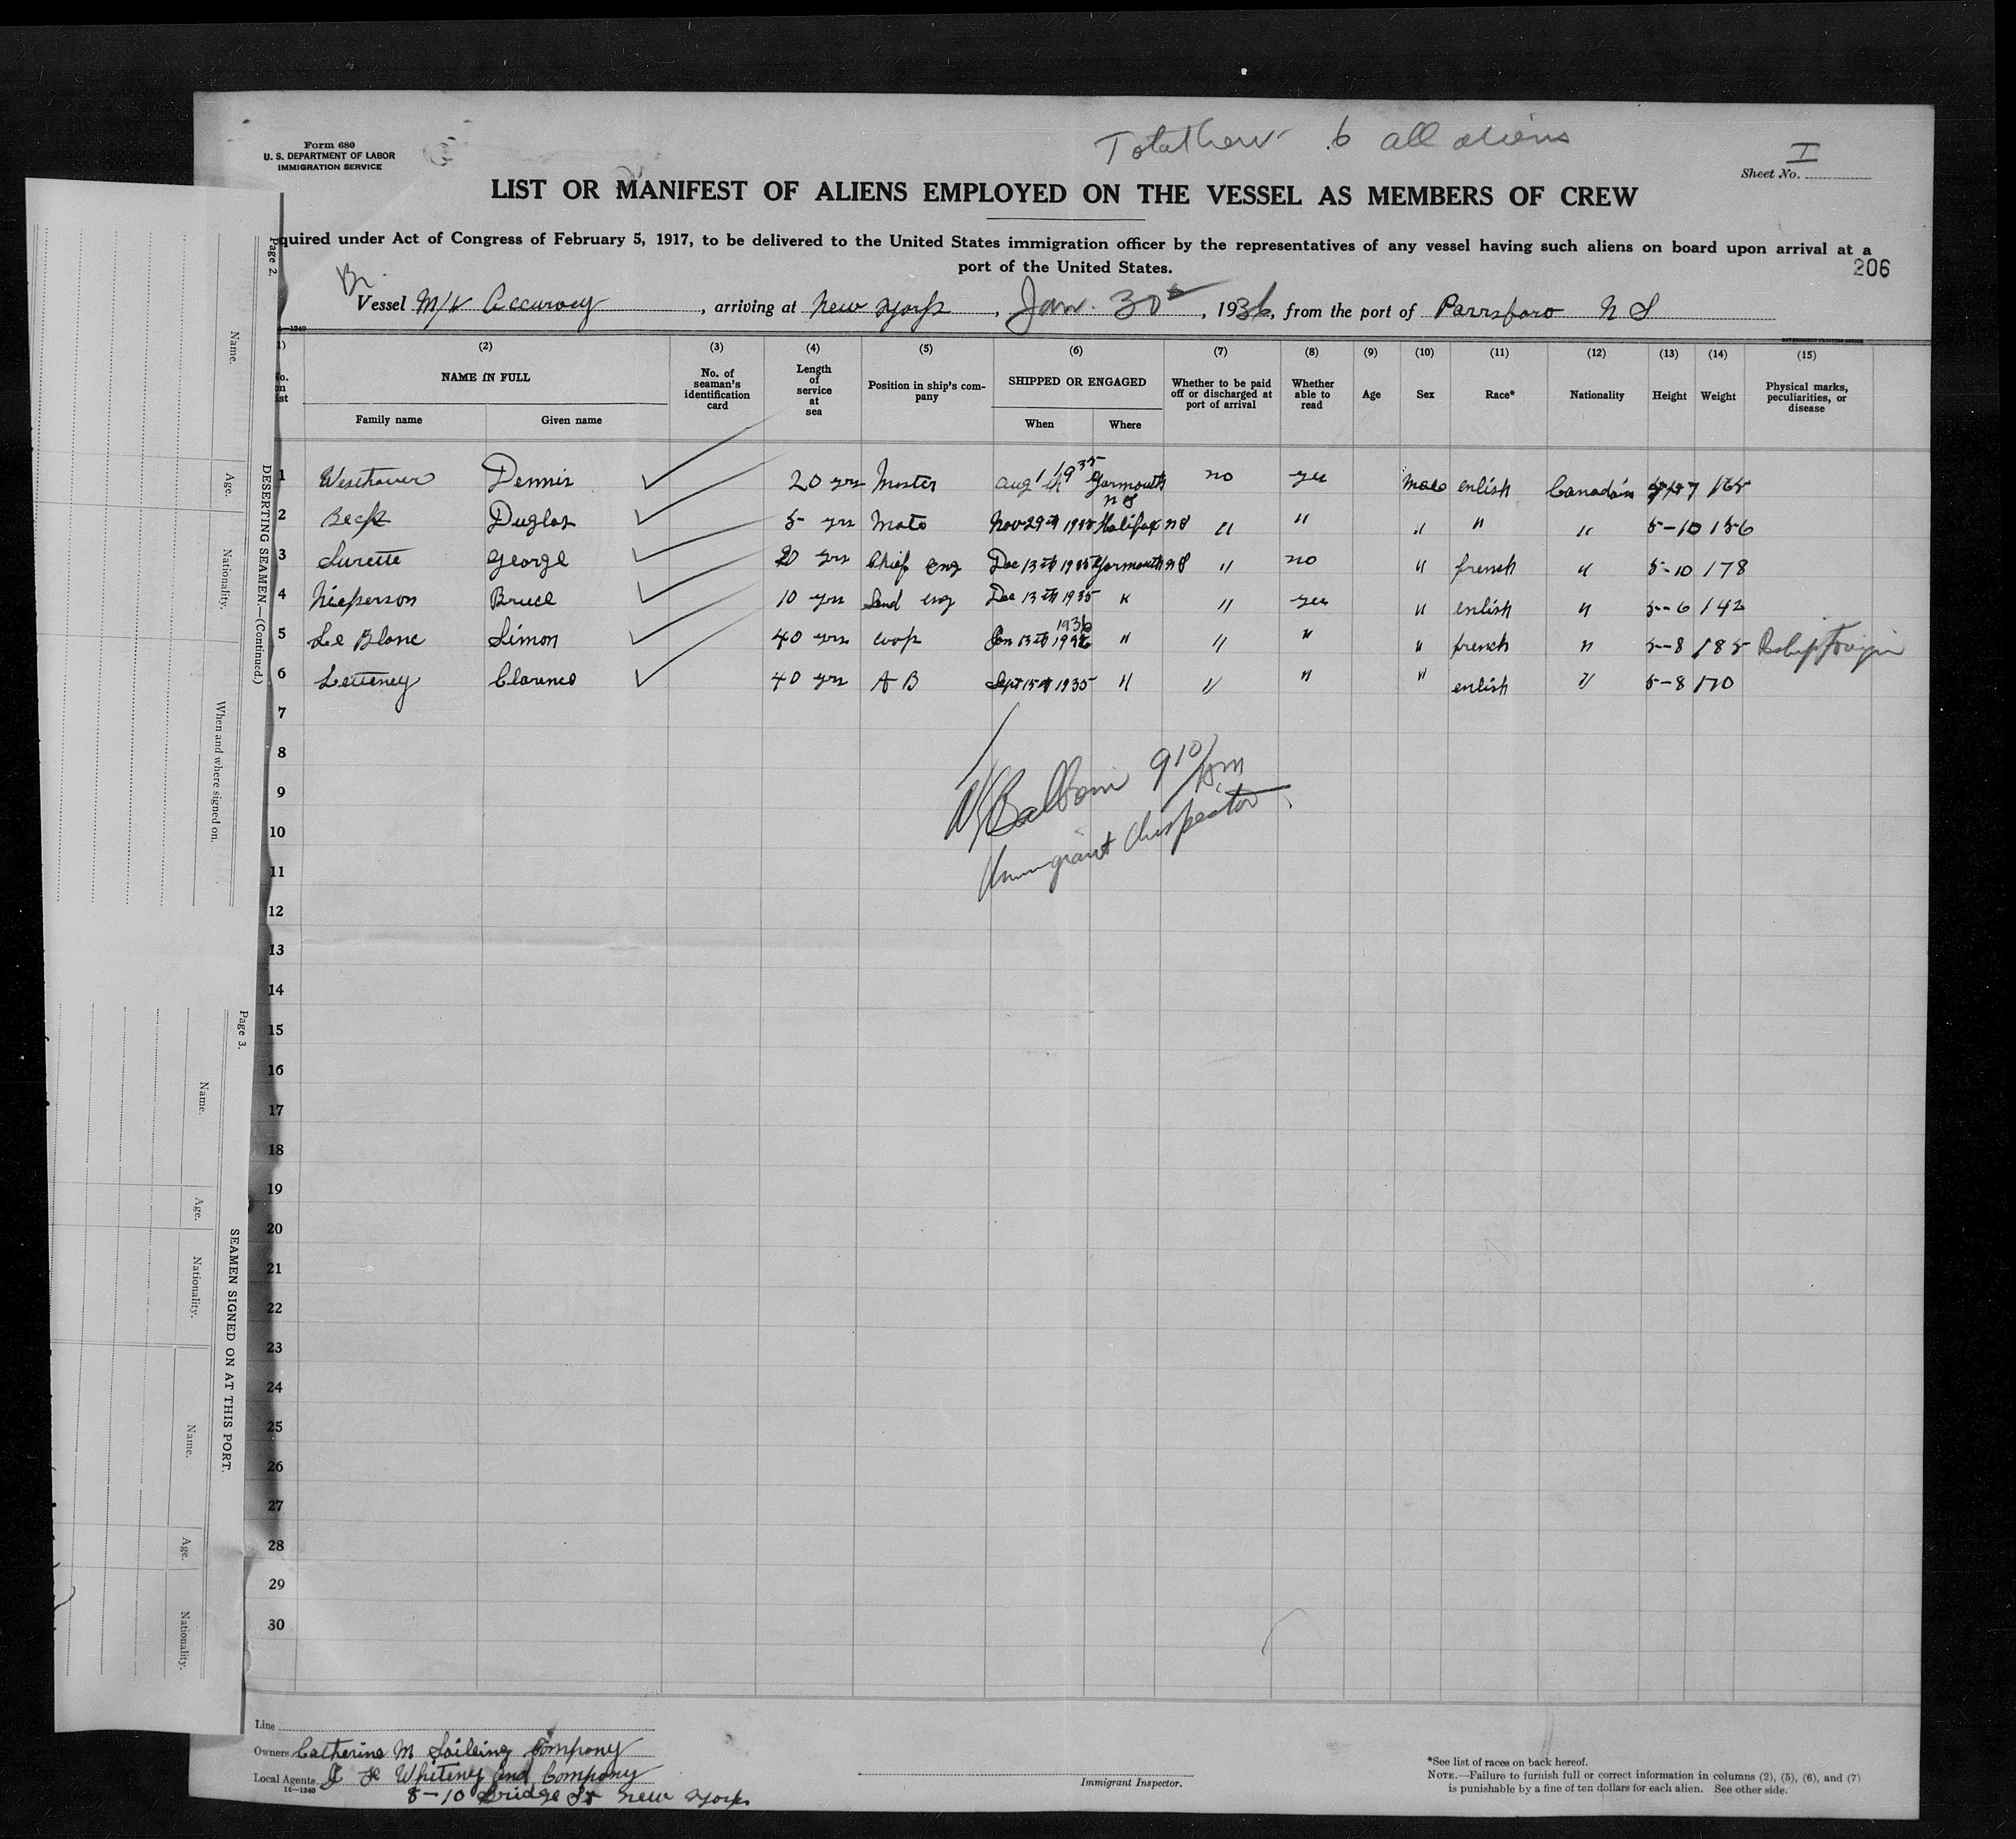 Total Crew 6 all aliens
Form 680
U. S. DEPARTMENT OF LABOR
IMMIGRATION SERVICE
I
Sheet No.
LIST OR MANIFEST OF ALIENS EMPLOYED ON THE VESSEL AS MEMBERS OF CREW
quired under Act of Congress of February 5, 1917, to be delivered to the United States immigration officer by the representatives of any vessel having such aliens on board upon arrival at a
port of the United States.
206
Br
Vessel M/V Accuracy, arriving at New York, Jan. 30, 1936, from the port of Parrsboro N S
(2) (3) (4) (5) (6) (7) (8) (9) (10) (11) (12) (13) (14) (15)
NAME IN FULL
Family name Given name
No. of seaman's identification card
Length of service at sea
Position in ship's company
SHIPPED OR ENGAGED
When Where
Whether to be paid off or discharged at port of arrival
Whether able to read
Age
Sex
Race*
Nationality
Height
Weight
Physical marks, peculiarities, or disease
1 Westhaver Dennis 20 yrs Master Aug 1 1935 Yarmouth N S no yes male enlish Canadain 165
2 Beck Duglas 5 yrs Mate Nov 29th 1935 Halifax N S " " " " " 5-10 156
3 Surette George 20 yrs Chief Eng Dec 13th 1935 Yarmouth N S " no " french " 5-10 178
4 Bruce 10 yrs Send eng Dec 13th 1935 " " yes " enlish " 5-6 142
5 Le Blanc Simon 40 yrs cook Jan 13th 1936 " " " " french " 5-8 185
6 Letteney Clarence 40 yrs A B Sept 15th 1935 " " " " enlish " 5-8 170
7
8
9
10
11
12
13
14
15
16
17
18
19
20
21
22
23
24
25
26
27
28
29
30
9 10/ AM
Immigrant Inspector
Line
Owners Catherine M Sailing Company
Local Agents Whiteny and Company
14—1240
8-10 Bridge St New York
Immigrant Inspector.
*See list of races on back hereof.
NOTE.—Failure to furnish full or correct information in columns (2), (5), (6), and (7)
is punishable by a fine of ten dollars for each alien. See other side.
Page 2.
DESERTING SEAMEN.—(Continued.)
Name.
Age.
Nationality.
When and where signed on.
Page 3.
SEAMEN SIGNED ON AT THIS PORT.
Name.
Age.
Nationality.
Name.
Age.
Nationality.